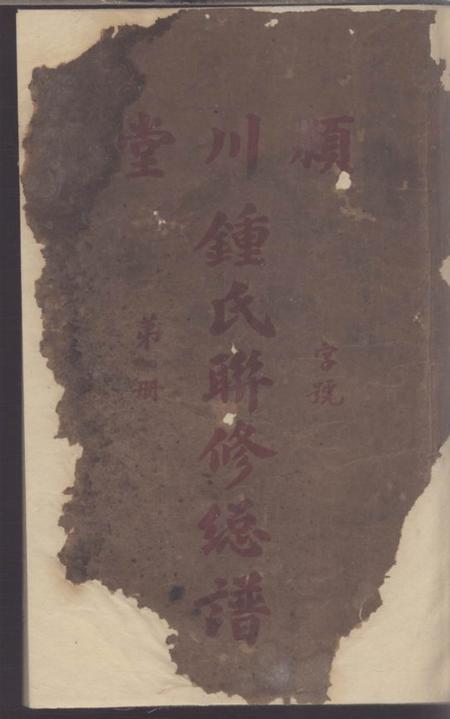 潁川堂
字號
鍾氏聯修総譜
第 册